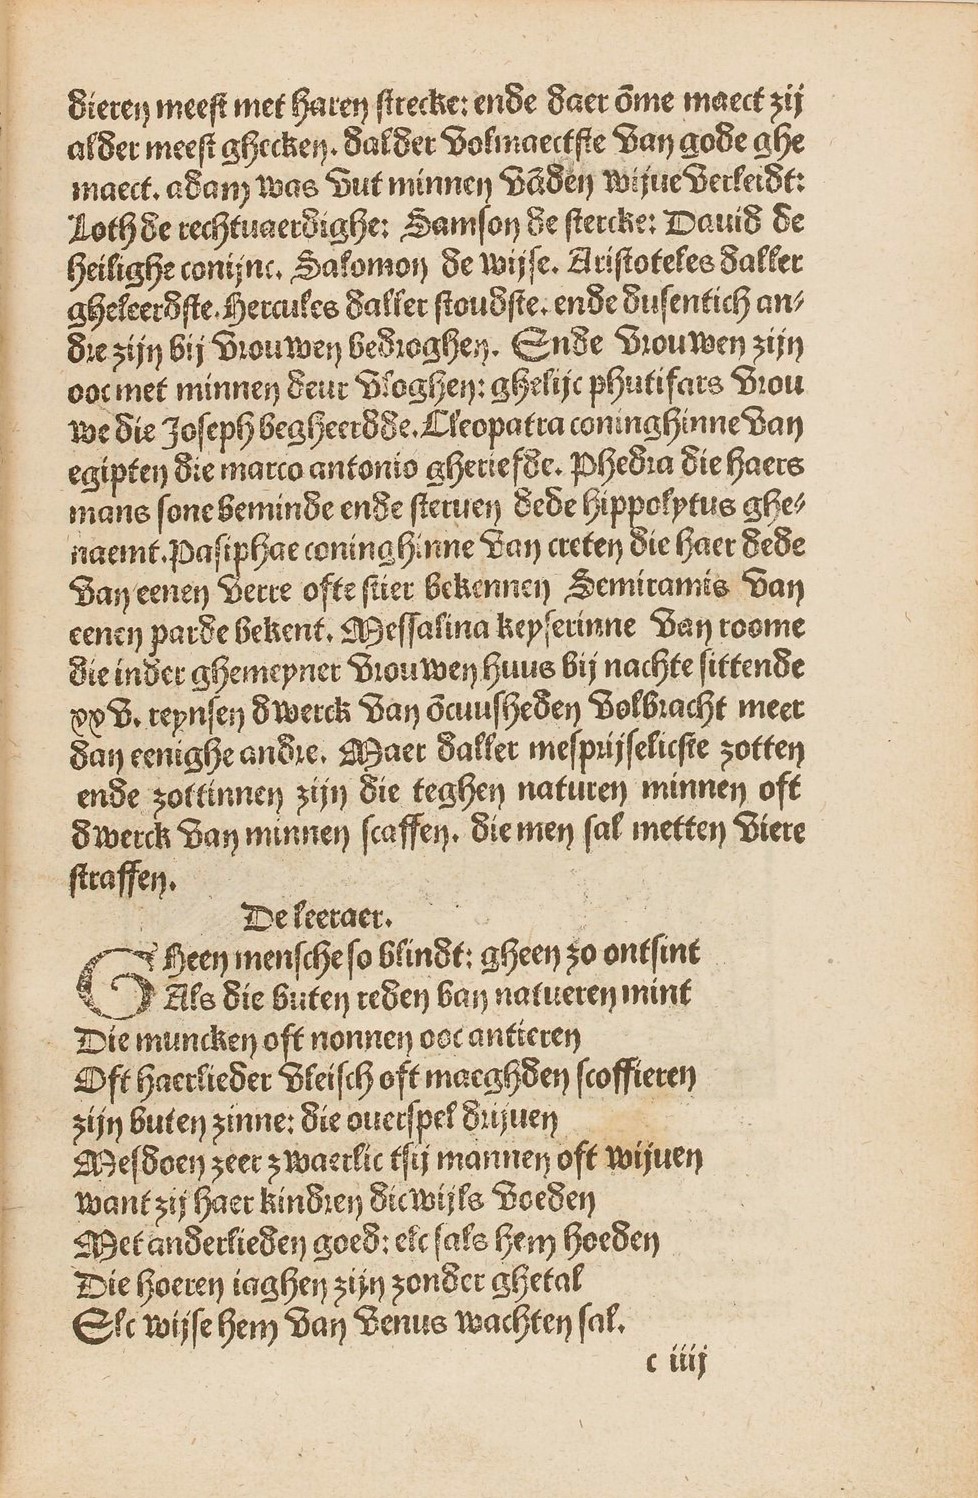 dieren meest met haren strecke: ende daer ōme maect zij
alder meest ghecken. dalder volmaectste van gode ghe
maect. adam was vut minnen vāden wijue verleidt:
Loth de rechtuaerdighe: Samson de stercke: Dauid de
heilighe conijnc. Salomon de wijse. Aristoteles daller
gheleerdste. Hercules daller stoudste. ende dusentich an⸗
dre zijn bij vrouwen bedroghen. Ende vrouwen zijn
ooc met minnen deur vloghen: ghelijc phutifars vrou
we die Joseph begheerdde. Cleopatra coninghinne van
egipten die marco antonio gheriefde. Phedra die haers
mans sone beminde ende steruen dede hippolytus ghe⸗
naemt. Pasiphae coninghinne van creten die haer dede
van eenen verre ofte stier bekennen Semiramis van
eenen parde bekent. Messalina keyserinne van roome
die inder ghemeyner vrouwen huus bij nachte sittende
xxv. reynsen dwerck van ōcuusheden volbracht meer
dan eenighe andre. Maer daller mesprijselicste zotten
ende zottinnen zijn die teghen naturen minnen oft
dwerck van minnen scaffen. die men sal metten viere
straffen.
De leeraer.
GHeen mensche so blindt: gheen zo ontsint
Als die buten reden van natueren mint
Die muncken oft nonnen ooc antieren
Oft haerlieder vleisch oft maeghden scoffieren
zijn buten zinne: die ouerspel drijuen
Mesdoen zeer zwaerlic tsij mannen oft wijuen
want zij haer kindren dicwijls voeden
Met anderlieden goed: elc sals hem hoeden
Die hoeren iaghen zijn zonder ghetal
Elc wijse hem van Venus wachten sal.
c iiij